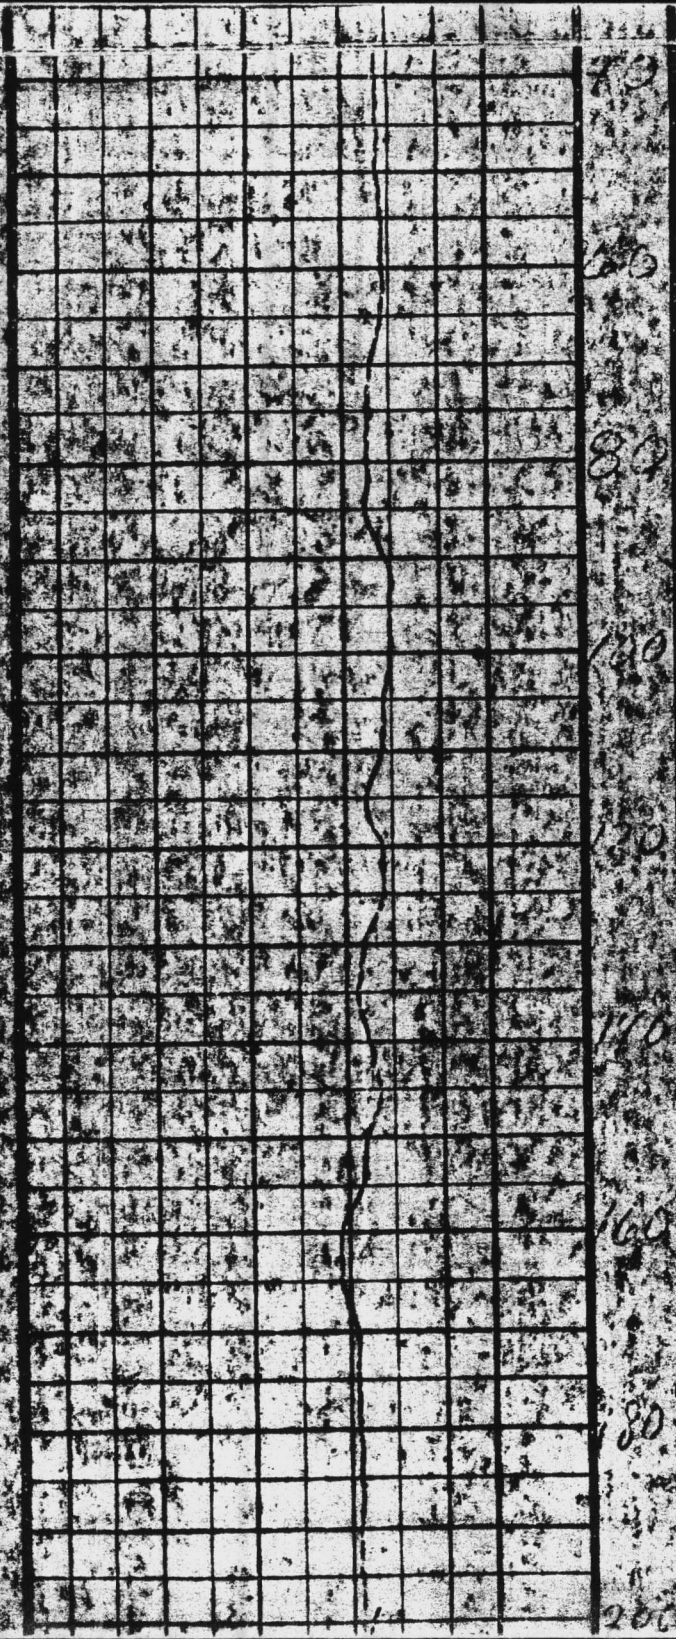 60
80
100
120
140
160
180
200